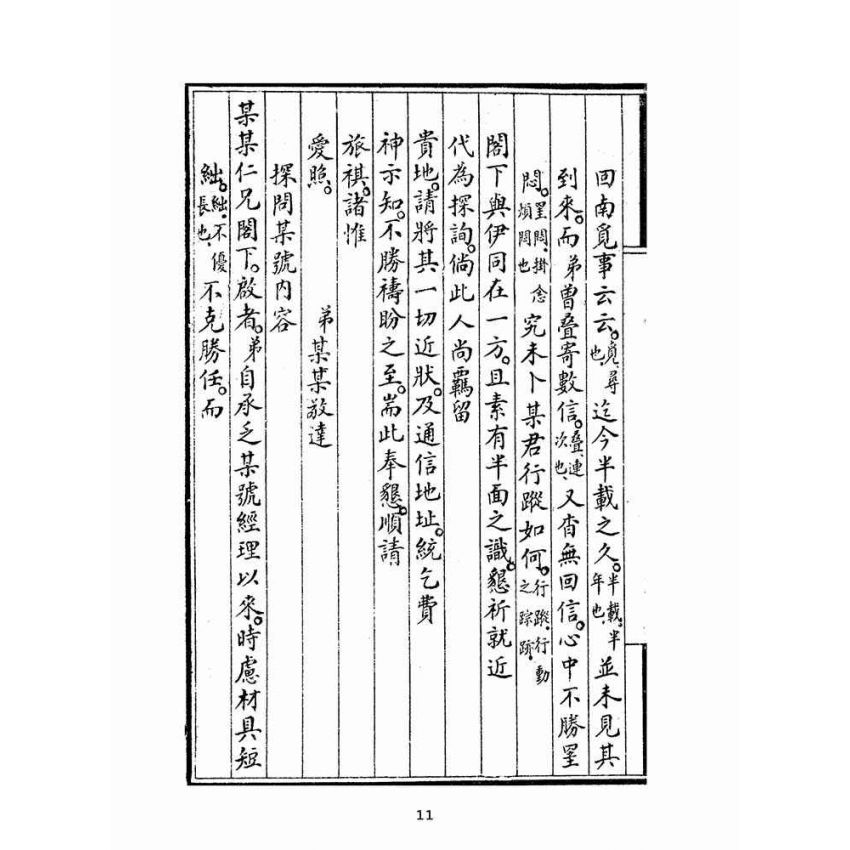 回南覓事云云。覓、尋也、迄今半載之久。半載。半年也、並未見其
到來。而弟曾叠寄數信。叠、連次也、又杳無回信。心中不勝罣
悶。罣悶、掛念煩悶也究未卜某君行蹤如何。行蹤、行動之踪跡、
閣下與伊同在一方。且素有半面之識。懇祈就近
代為探詢。倘此人尚羈留
貴地。請將其一切近狀。及通信地址。統乞費
神示知。不勝禱盼之至。耑此奉懇。順請
旅祺。諸惟
愛照。 弟某某敬達
探問某號內容
某某仁兄閣下。啟者。弟自承乏某號經理以來。時慮材具短
絀。絀、不優長也不克勝任。而
11